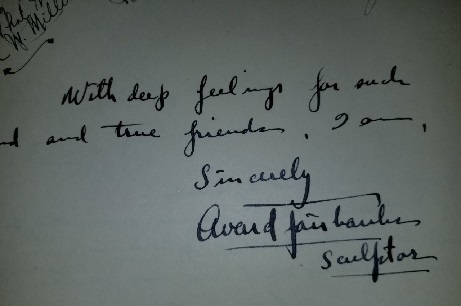 W. Mill
With deep feelings for such
nd and true friends, I am,
Sincerely
Avard Fairbanks
Sculptor